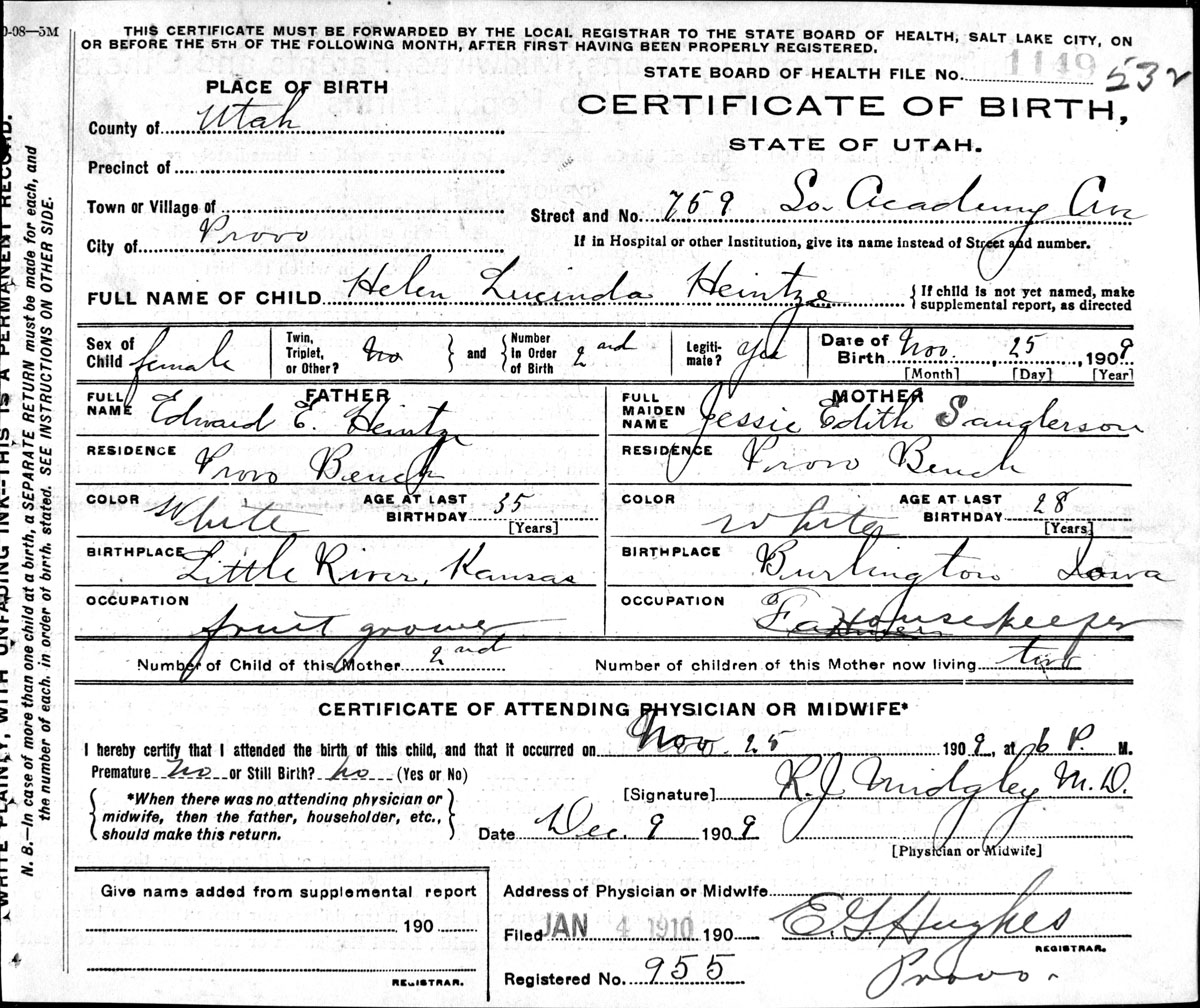 0-08—5M
THIS CERTIFICATE MUST BE FORWARDED BY THE LOCAL REGISTRAR TO THE STATE BOARD OF HEALTH, SALT LAKE CITY, ON
OR BEFORE THE 5TH OF THE FOLLOWING MONTH, AFTER FIRST HAVING BEEN PROPERLY REGISTERED.
STATE BOARD OF HEALTH FILE NO. 1149 532
PLACE OF BIRTH
CERTIFICATE OF BIRTH,
STATE OF UTAH.
County of Utah
Precinct of
Town or Village of
Street and No. 759 So. Academy Ave
City of Provo
If in Hospital or other Institution, give its name instead of Street and number.
FULL NAME OF CHILD Helen Lucinda Heintze { If child is not yet named, make supplemental report, as directed
Sex of Child female Twin, Triplet, or Other? No } and { Number In Order of Birth 2nd Legiti-mate? Yes Date of Birth Nov. 25, 1909
[Month] [Day] [Year]
FATHER MOTHER
FULL NAME Edward E. Heintze FULL MAIDEN NAME Jessie Edith Sanderson
RESIDENCE Provo Bench RESIDENCE Provo Bench
COLOR White AGE AT LAST BIRTHDAY 35 [Years] COLOR White AGE AT LAST BIRTHDAY 28 [Years]
BIRTHPLACE Little River, Kansas BIRTHPLACE Burlington Iowa
OCCUPATION fruit grower OCCUPATION Housekeeper
Number of Child of this Mother 2nd Number of children of this Mother now living two
CERTIFICATE OF ATTENDING PHYSICIAN OR MIDWIFE*
I hereby certify that I attended the birth of this child, and that it occurred on Nov. 25 1909, at 6 P. M.
Premature No or Still Birth? No (Yes or No)
[Signature] R.J. Midgley M.D.
{ *When there was no attending physician or
midwife, then the father, householder, etc.,
should make this return. }
Date Dec. 9 1909
[Physician or Midwife]
Give name added from supplemental report
190
REGISTRAR.
Address of Physician or Midwife
Filed JAN 4 1910 190 E G Hughes
REGISTRAR.
Registered No. 955 Provo.
WRITE PLAINLY, WITH UNFADING INK--THIS IS A PERMANENT RECORD.
N. B.—In case of more than one child at a birth, a SEPARATE RETURN must be made for each, and
the number of each, in order of birth, stated. SEE INSTRUCTIONS ON OTHER SIDE.
4